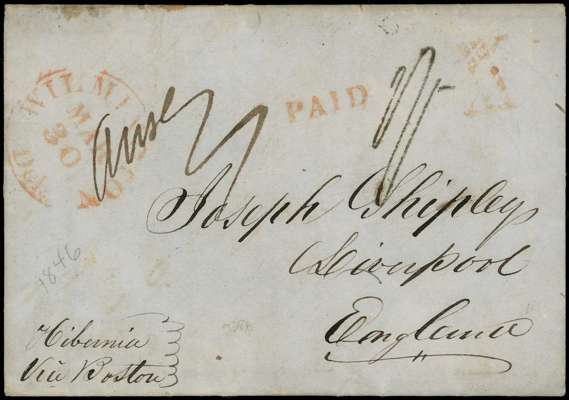 WILMINGTON DEL.
MAR
30
Ansd
PAID
Joseph Shipley
Liverpool
England
1846
Hibernia
Via Boston